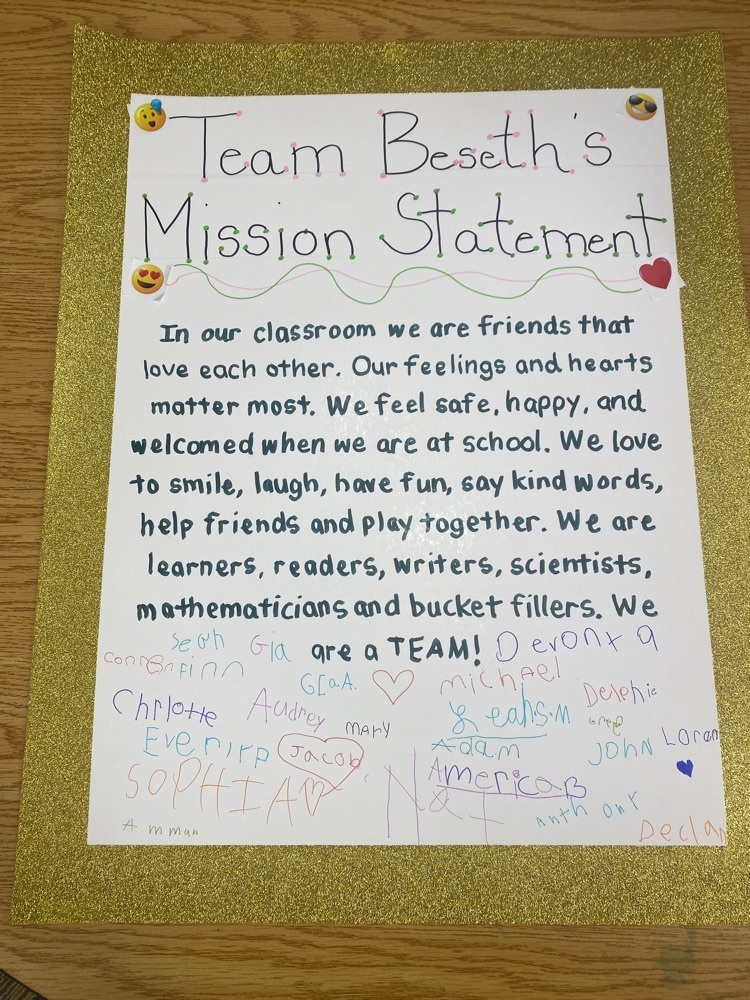 Team Beseth's
Mission Statement
In our classroom we are friends that
love each other. Our feelings and hearts
matter most. We feel safe, happy, and
welcomed when we are at school. We love
to smile, laugh, have fun, say kind words,
help friends and play together. We are
learners, readers, writers, scientists,
mathematicians and bucket fillers. We
are a TEAM!
Gia Devonta
Finn
GIa.A. Michael
Chrlotte Audrey Leahs.M
MARY
Jacob Adam JOHN Loran
SOPHIA AmericaB
Nat
Amman Declan